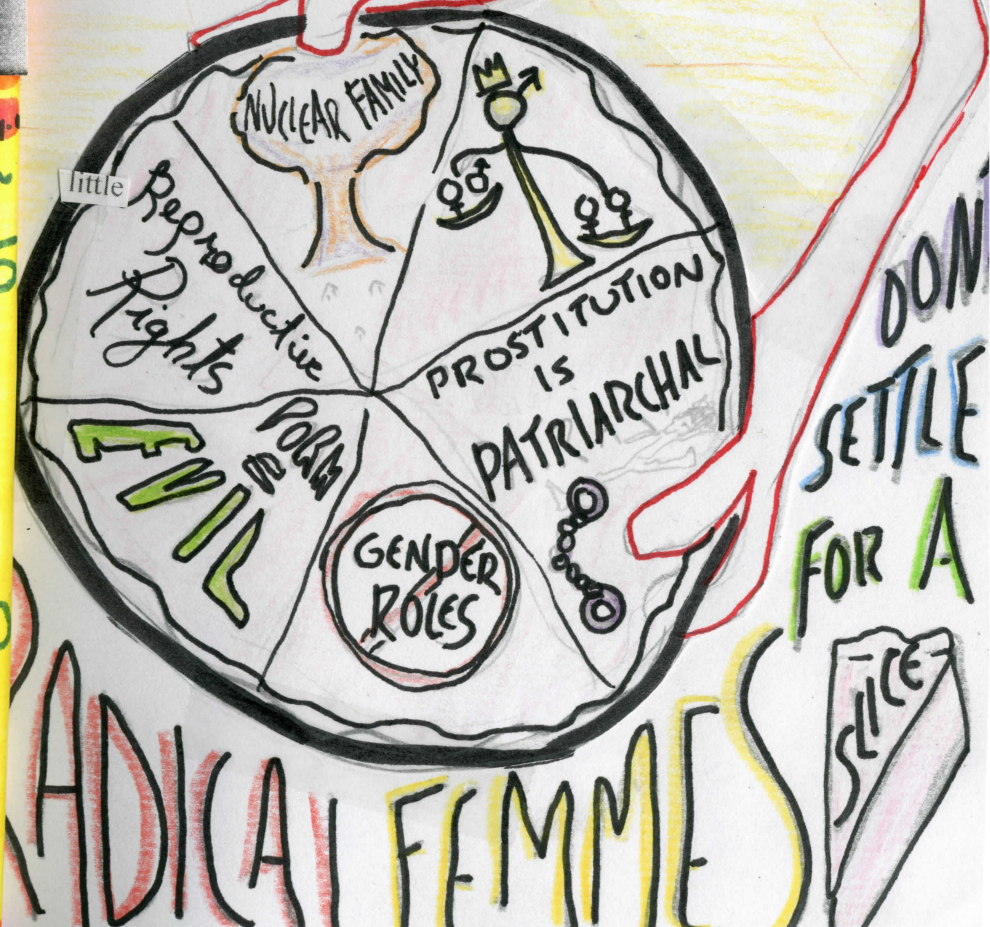 NUCLEAR FAMILY
little
Reproductive
Rights
PROSTITUTION
IS
PATRIARCHAL
PORN
IS
EVIL
GENDER
ROLES
DON
SETTLE
FOR A
SLICE
RADICAL FEMMES